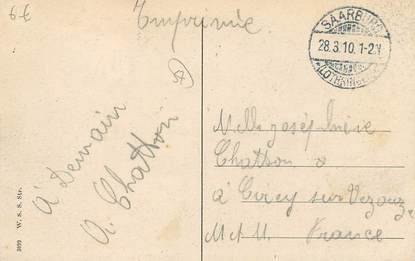 6€
Imprimée
SAARBURG
28.3.10. 1-2N
(LOTHRINGEN)
57
À Demain
A. Chatton
Melle Joséphine
Chatton
à Cirey sur Vezouze
M et M. France
3099 W. S. S. Str.